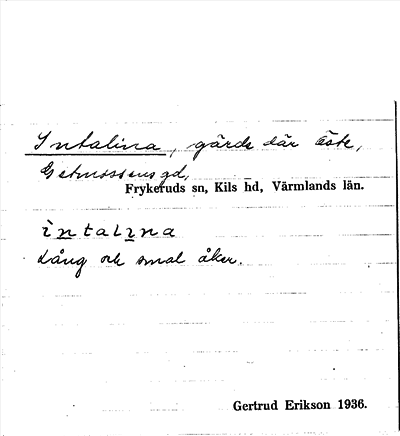 Intalina, gärde där öste,
Getmossens gd,
Frykeruds sn, Kils hd, Värmlands län.
ìntalìna
Lång och smal åker.
Gertrud Erikson 1936.